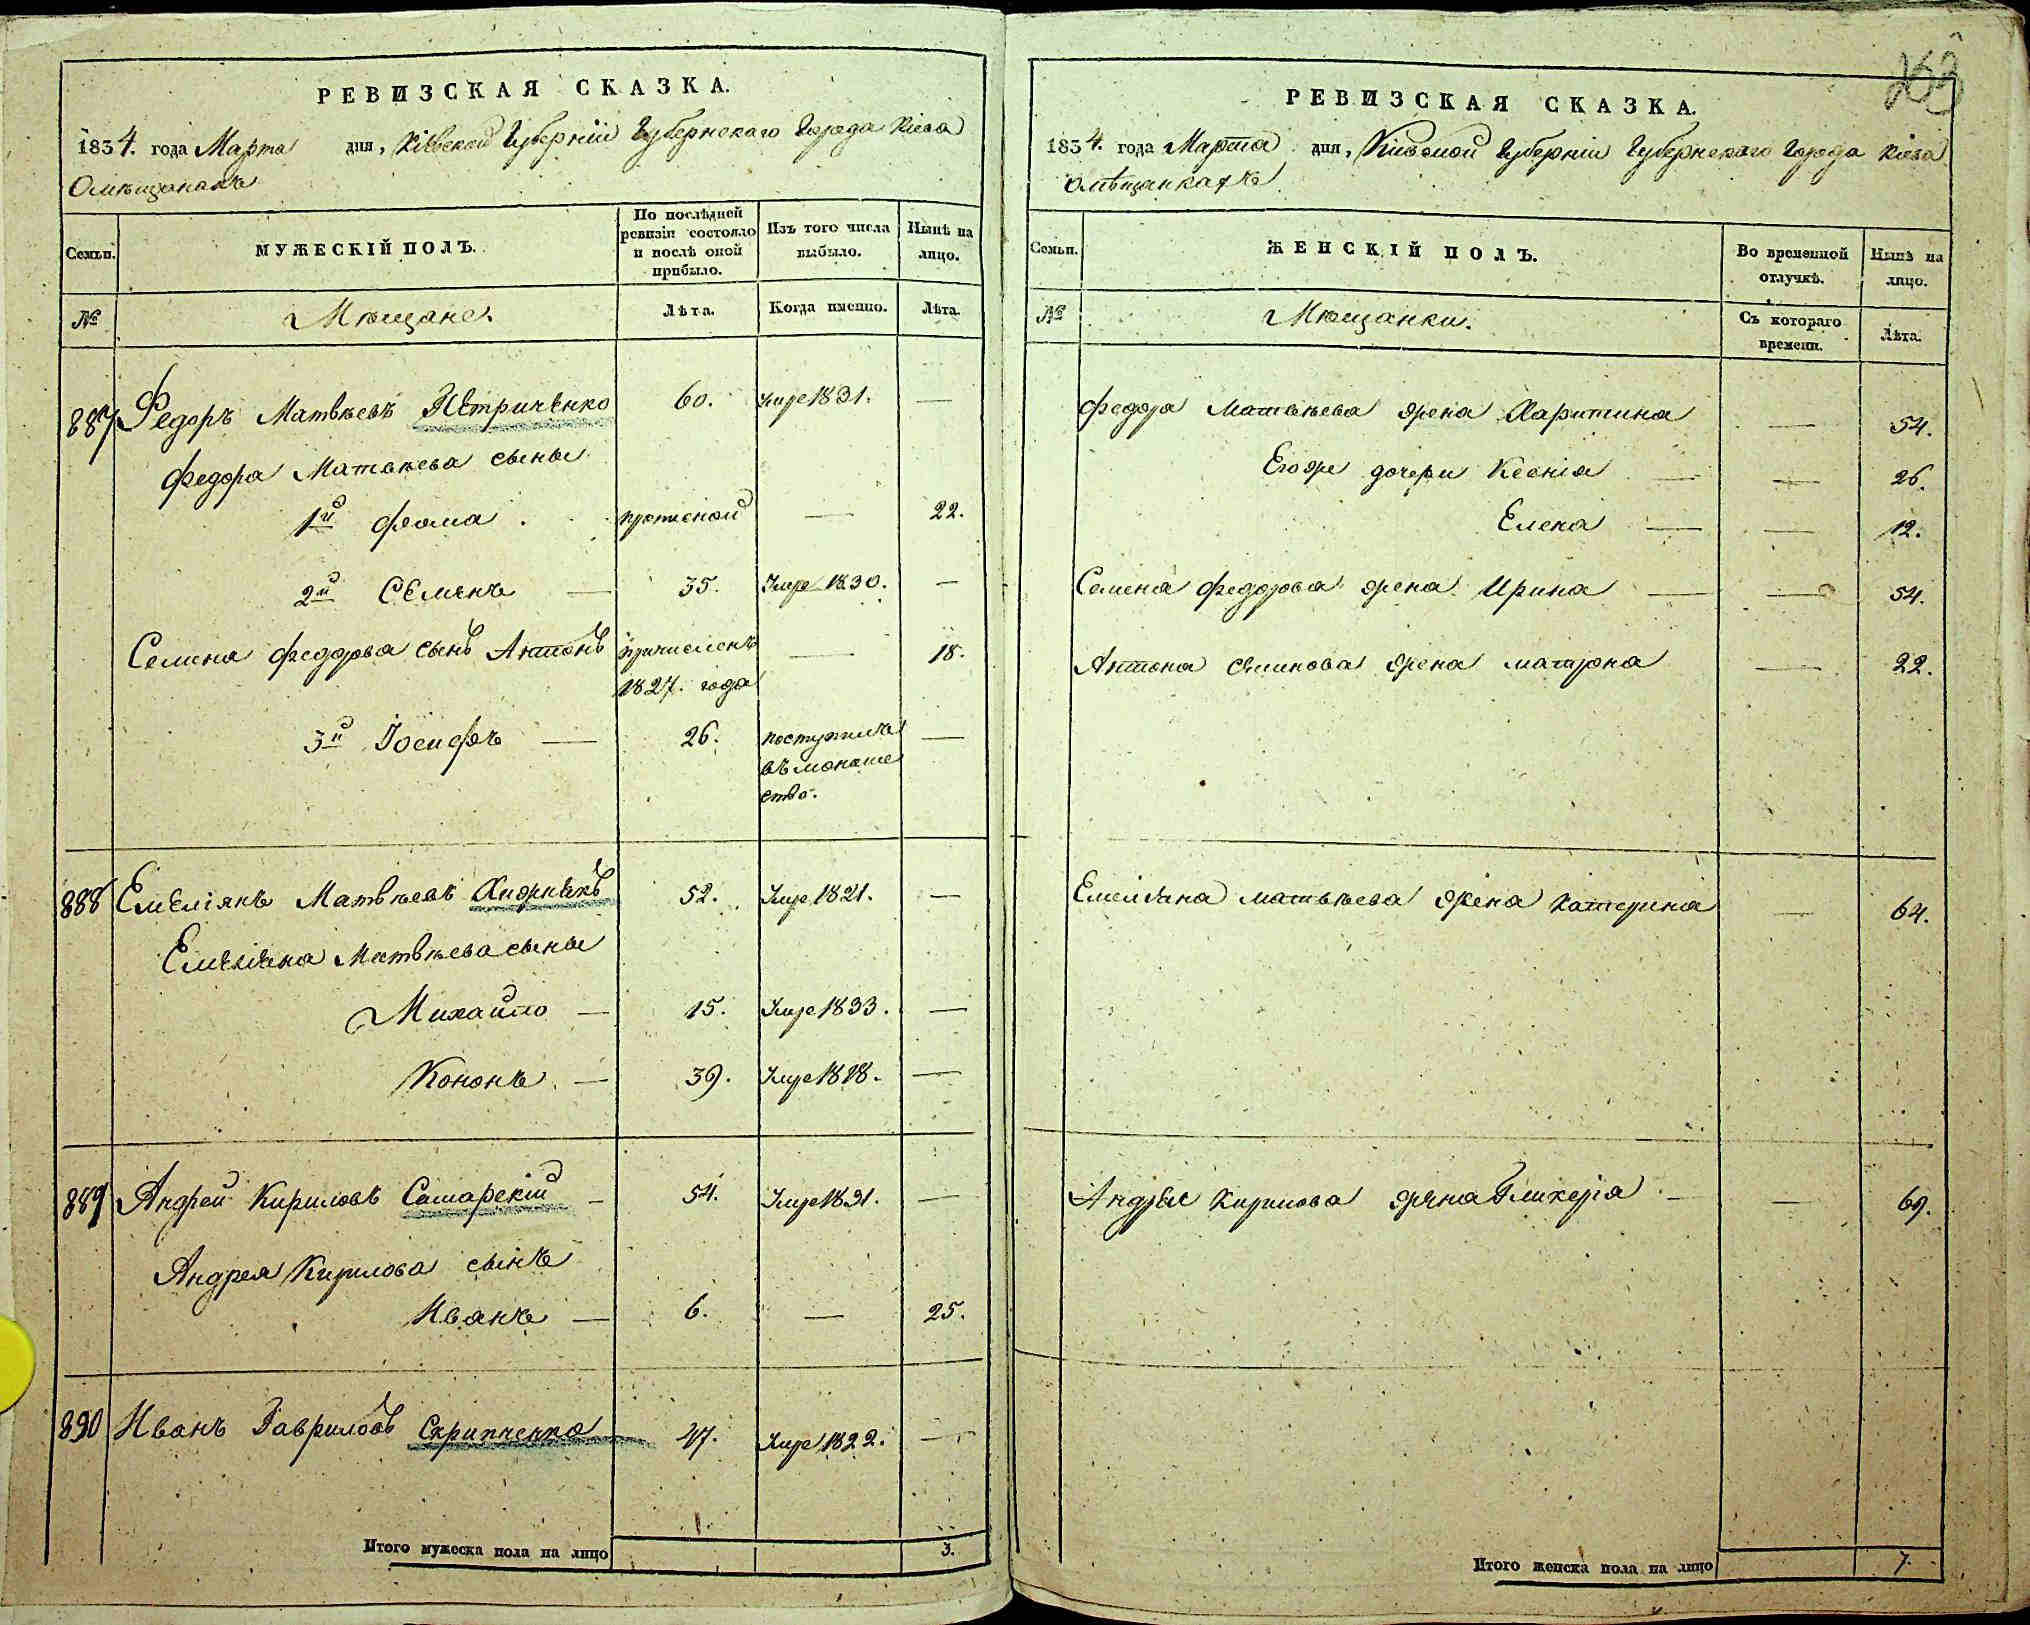 РЕВИЗСКАЯ СКАЗКА.
1834. года Марта дня, Кіевской Губерніи Губернскаго Города Кіева
О мѣщанахъ
Семьи.
МУЖЕСКІЙ ПОЛЪ.
По послѣдней ревизіи состояло и послѣ оной прибыло.
Изъ того числа выбыло.
Нынѣ на лицо.
№
Мѣщане.
Лѣта.
Когда именно.
Лѣта.
887 Федоръ Матвѣевъ Петриченко 60. Умре 1831. —
Федора Матвѣева сыны
1й Фома . 22.
2й Семенъ — 35. Умре 1830. —
Семена Федорова сынъ Антонъ причисленъ 1827. года — 18.
3й Іосифъ — 26. поступилъ въ монашество. —
888 Емеліянъ Матвѣевъ 52. Умре 1821. —
Емеліяна Матвѣева сыны
Михайло — 15. Умре 1833. —
Кононъ — 39. Умре 1818. —
889 Андрей Кириловъ Самарскій — 54. Умре 1831. —
Андрея Кирилова сынъ
Иванъ — 6. — 25.
890 Иванъ Гавриловъ Скрипченко 47. Умре 1822. —
Итого мужеска пола на лицо 3.
263
РЕВИЗСКАЯ СКАЗКА.
1834. года Марта дня, Кіевской Губерніи Губернскаго Города Кіева
О мѣщанкахъ
Семьи.
ЖЕНСКІЙ ПОЛЪ.
Во временной отлучкѣ.
Нынѣ на лицо.
№
Мѣщанки.
Съ котораго времени.
Лѣта.
Федора Матвѣева жена Харитина — 54.
Егоже дочери Ксенія — — 26.
Елена — — 12.
Семена Федорова жена Ирина — — 54.
Антона Семинова жена матрона — 22.
Емеліяна матвѣева жена Катерина — 64.
Андрѣя Кирилова жена Гликерія — — 69.
Итого женска пола на лицо 7.